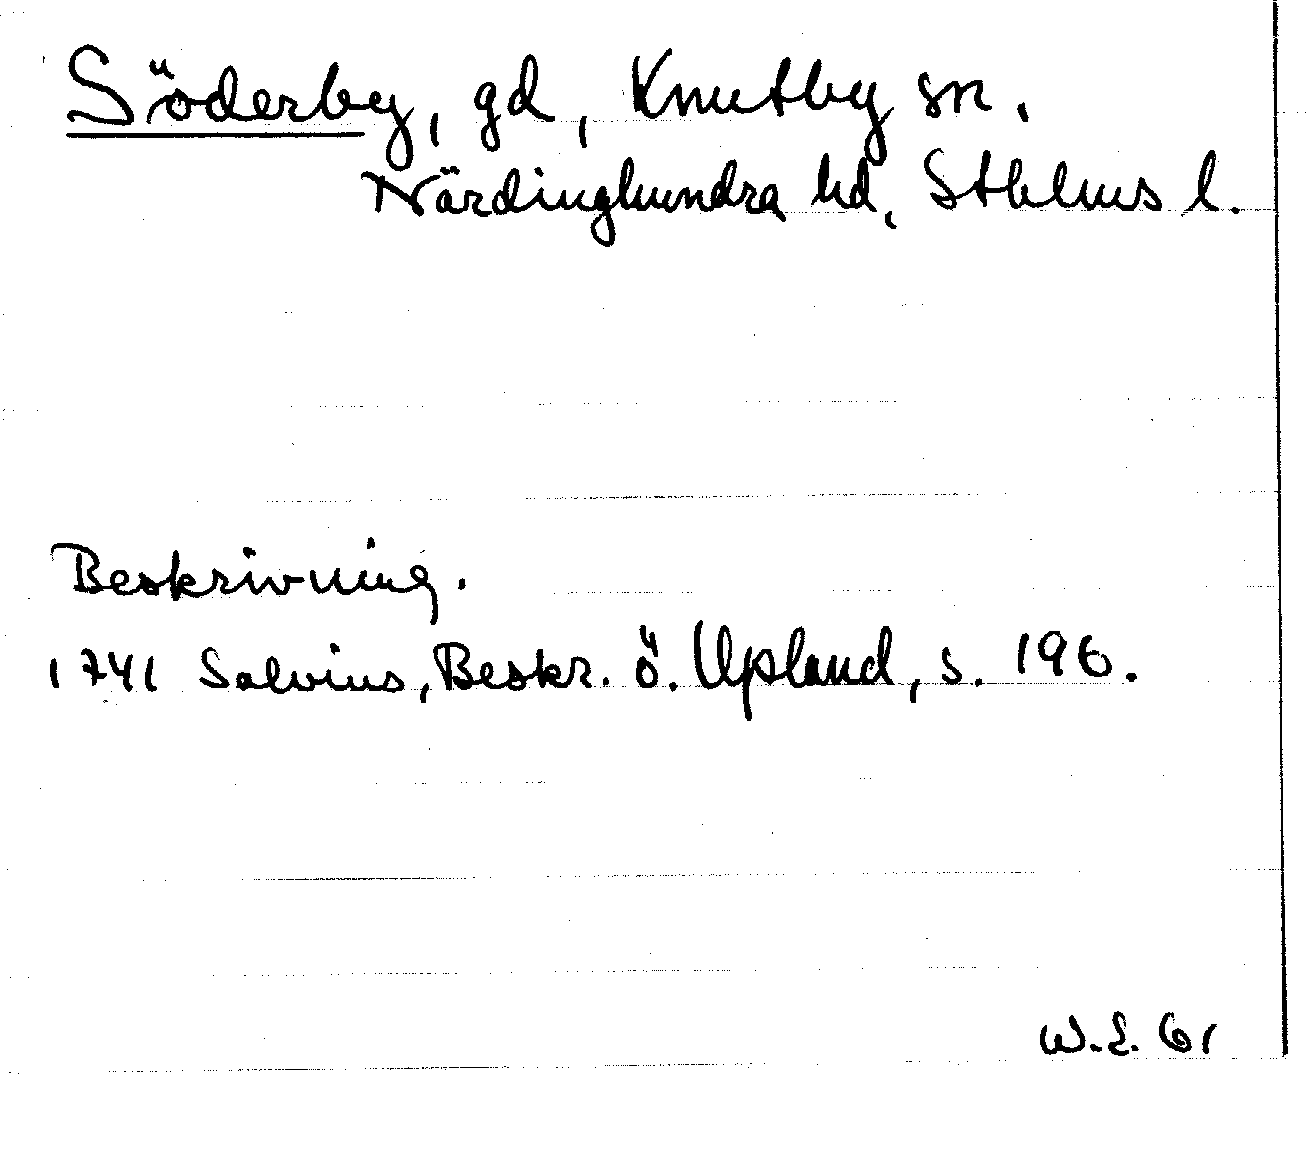 Söderby, gd, Knutby sn.
Närdinghundra hd, Sthlms l.
Beskrivning.
1741 Salvius, Beskr. ö. Upland, s. 196.
W.E. 61